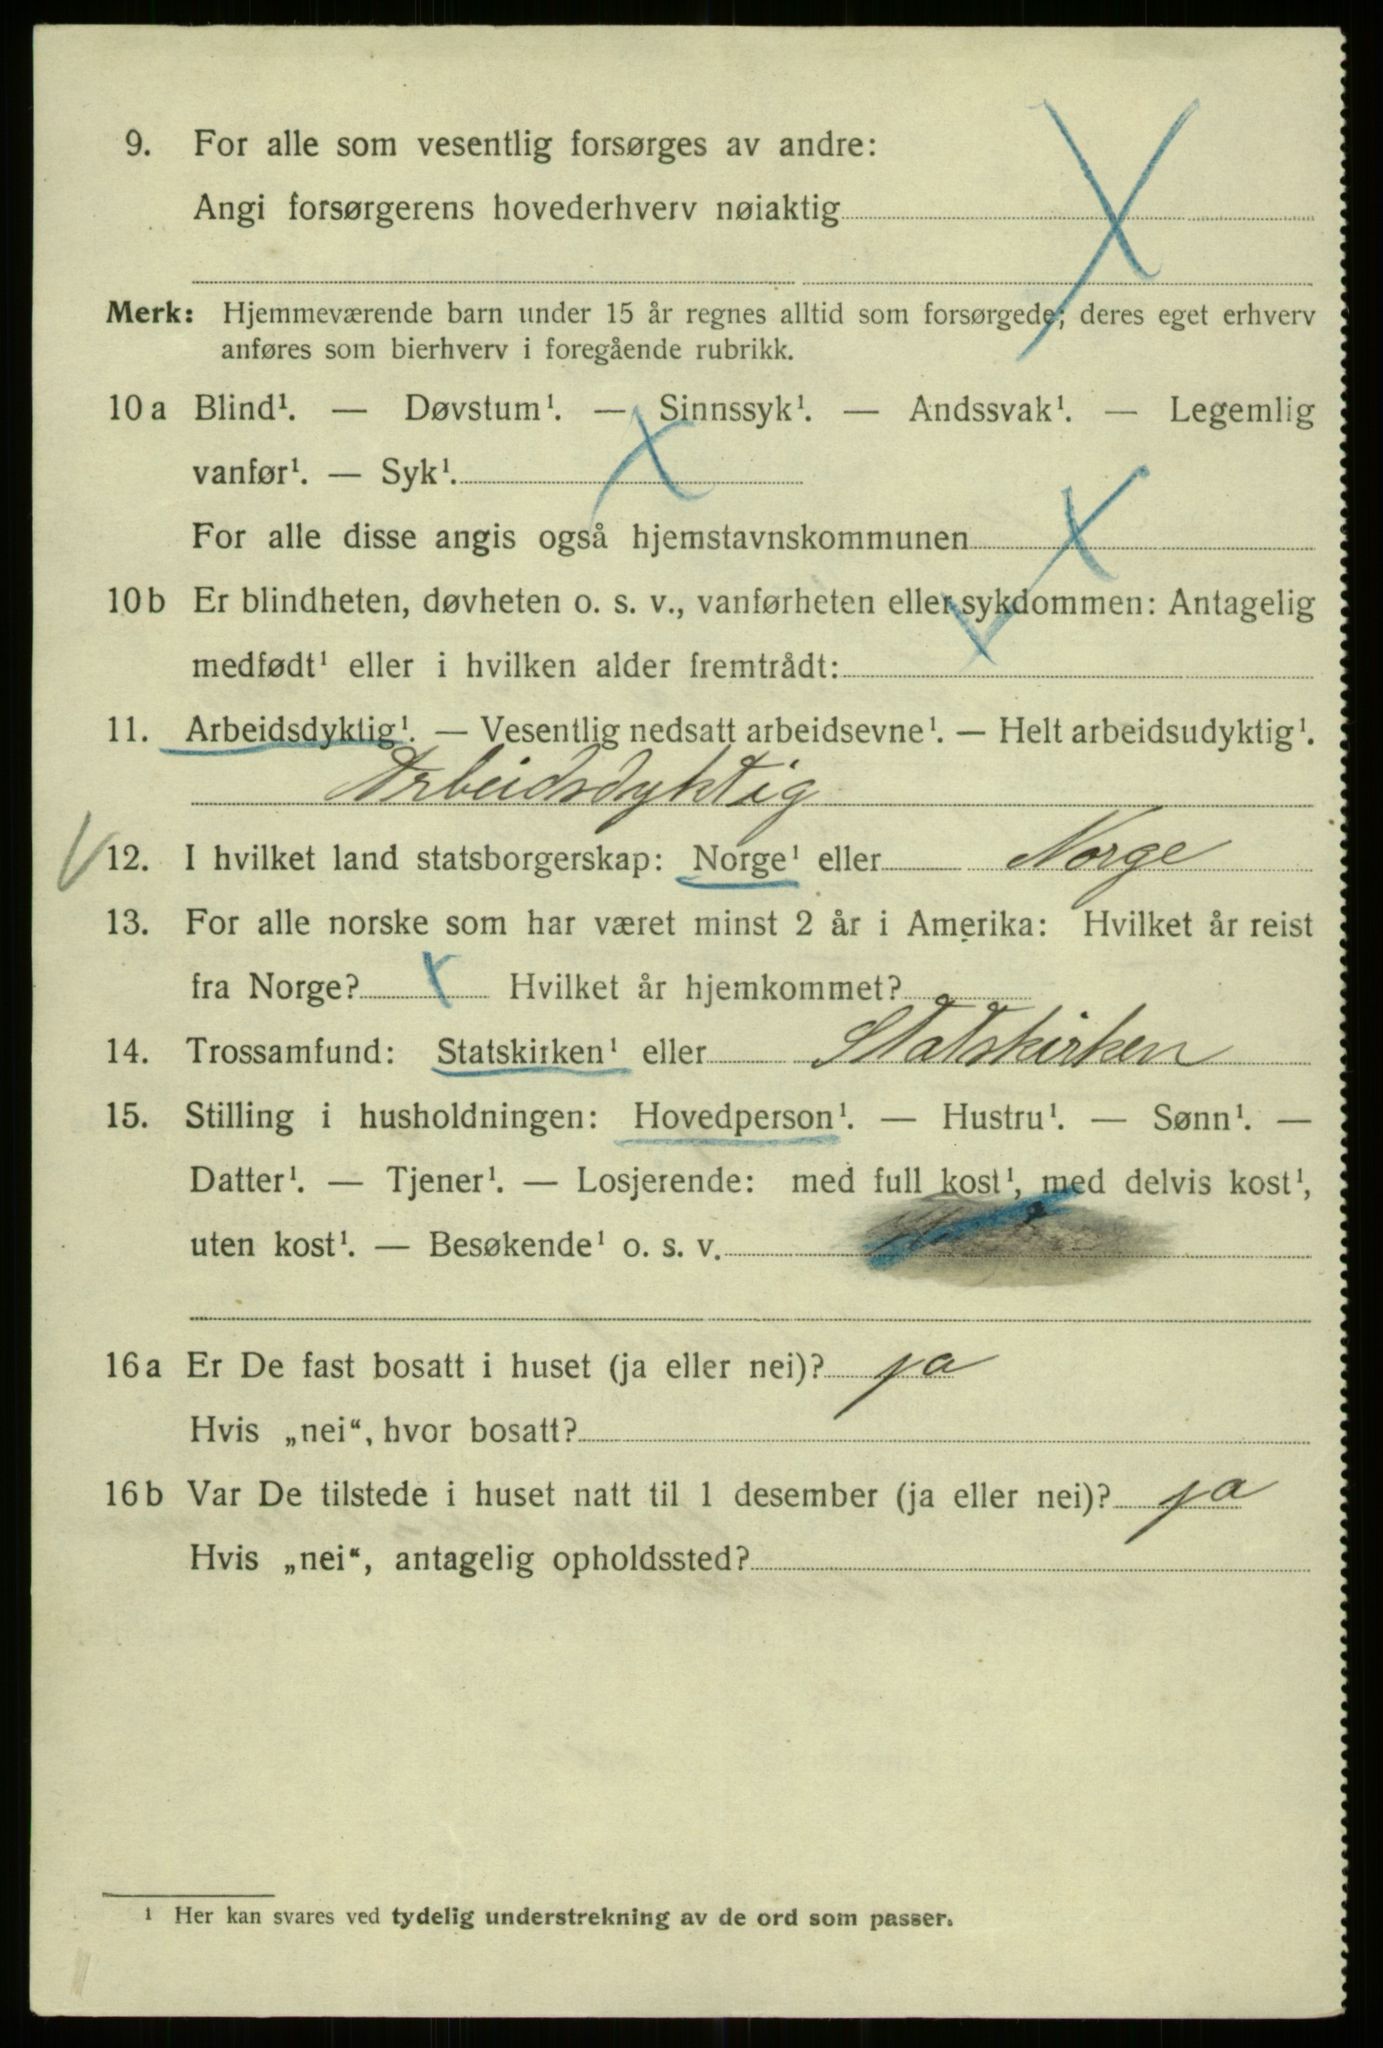 9. For alle som vesentlig forsørges av andre:
Angi forsørgerens hovederhverv nøiaktig
Merk: Hjemmeværende barn under 15 år regnes alltid som forsørgede; deres eget erhverv
anføres som bierhverv i foregående rubrikk.
10 a Blind¹. — Døvstum¹. — Sinnssyk¹. — Andssvak¹. — Legemlig
vanfør¹. — Syk¹.
For alle disse angis også hjemstavnskommunen
10 b Er blindheten, døvheten o. s. v., vanførheten eller sykdommen: Antagelig
medfødt¹ eller i hvilken alder fremtrådt:
11. Arbeidsdyktig¹. — Vesentlig nedsatt arbeidsevne¹. — Helt arbeidsudyktig¹.
Arbeidsdyktig
12. I hvilket land statsborgerskap: Norge¹ eller Norge
13. For alle norske som har været minst 2 år i Amerika: Hvilket år reist
fra Norge? Hvilket år hjemkommet?
14. Trossamfund: Statskirken¹ eller Statskirken
15. Stilling i husholdningen: Hovedperson¹. — Hustru¹. — Sønn¹. —
Datter¹. — Tjener¹. — Losjerende: med full kost¹, med delvis kost¹,
uten kost¹. — Besøkende¹ o. s. v.
16 a Er De fast bosatt i huset (ja eller nei)? ja
Hvis „nei“, hvor bosatt?
16 b Var De tilstede i huset natt til 1 desember (ja eller nei)? ja
Hvis „nei“, antagelig opholdssted?
¹ Her kan svares ved tydelig understrekning av de ord som passer.